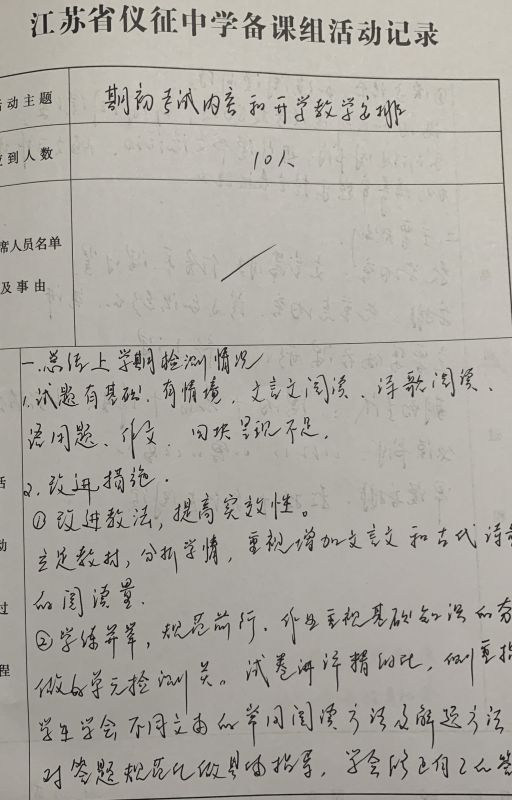 江苏省仪征中学备课组活动记录
活动主题 期初考试内容和开学教学安排
应到人数 10人
席人员名单
及事由
一.总结上学期检测情况
1.试题有基础、有情境,文言文阅读、诗歌阅读、
语用题、作文、四块呈现不足。
2.改进措施.
①改进教法,提高实效性。
立足教材,分析学情,重视增加文言文和古代诗歌
的阅读量.
②学练并举,规范前行.作业重视基础知识的夯
做好单元检测关。试卷讲评精的比,侧重指
学生学会不同文本的常用阅读方法及解题方法
对答题规范化做具体指导,学会修正自己的答
活
动
过
程